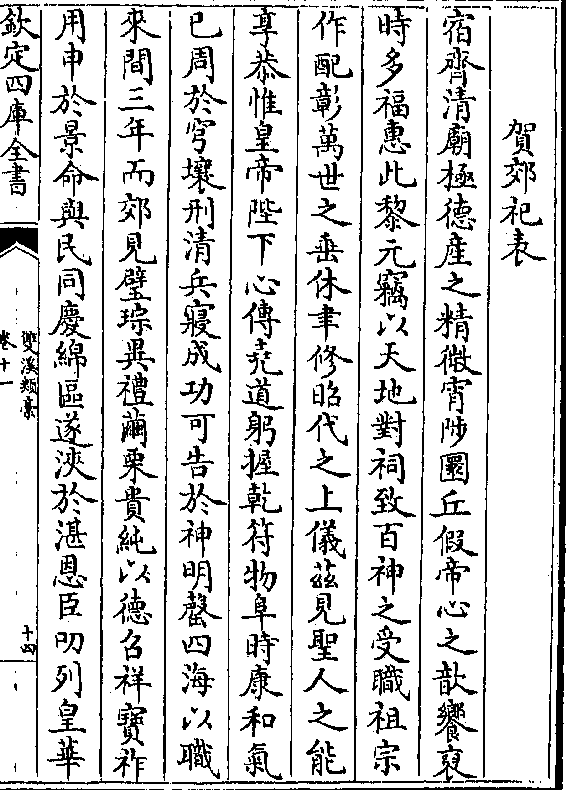 賀郊祀表
宿齊清廟極德産之精微宵陟圜丘假帝心之歆饗裒
時多福惠此黎元竊以天地對祠致百神之受職祖宗
作配彰萬世之垂休聿修昭代之上儀茲見聖人之能
享恭惟皇帝陛下心傳堯道躬握乾符物阜時康和氣
已周於穹壤刑清兵寢成功可告於神明罄四海以職
來間三年而郊見璧琮異禮繭栗貴純以德召祥寶祚
用申於景命與民同慶綿區遂浹於湛恩臣叨列皇華
欽定四庫全書
雙溪類稾
卷十一
十四